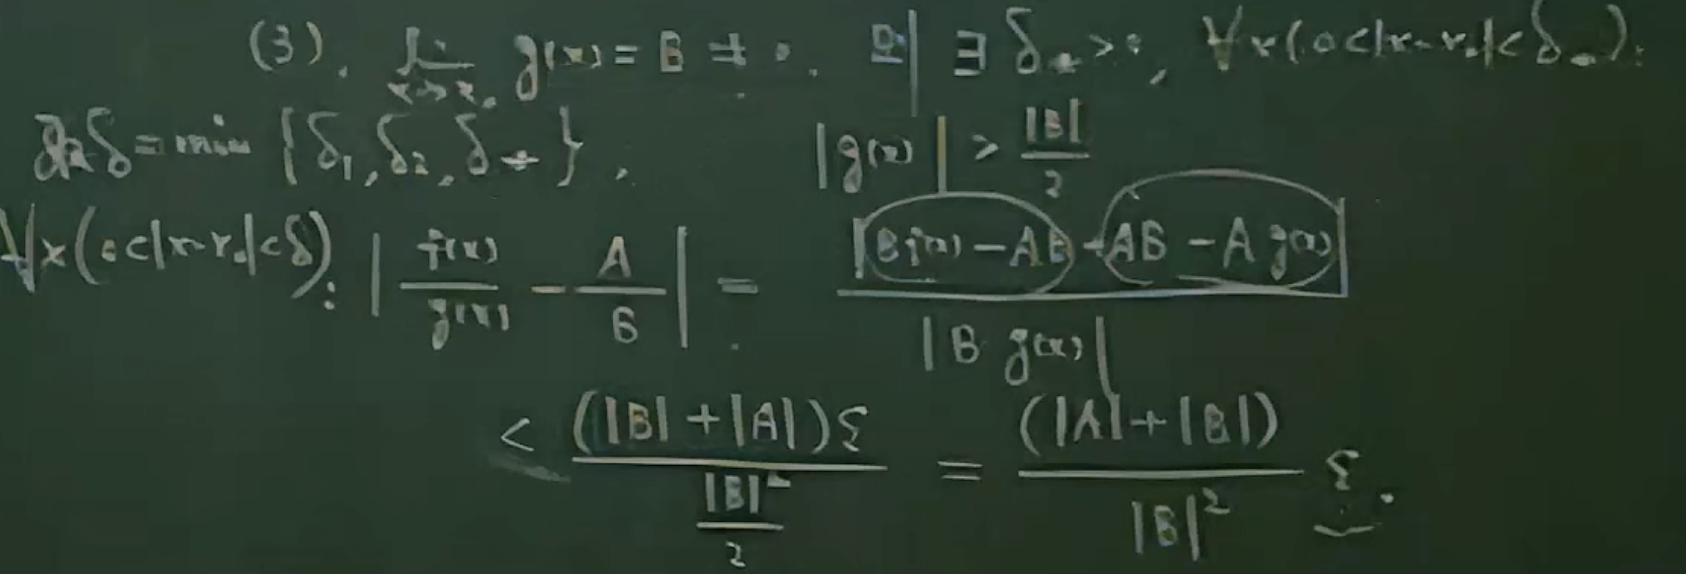 (3). lim x→x₀ g(x) = B ≠ 0. 则 ∃ δ* > 0, ∀x(0<|x-x₀|<δ*):
取δ = min {δ₁, δ₂, δ*}, |g(x)| > |B|/2
∀x(0<|x-x₀|<δ): | f(x)/g(x) - A/B | = |Bf(x) - AB + AB - A g(x)| / |B g(x)|
< (|B| + |A|)ε / (|B|²/2) = (|A| + |B|) / |B|² ε.